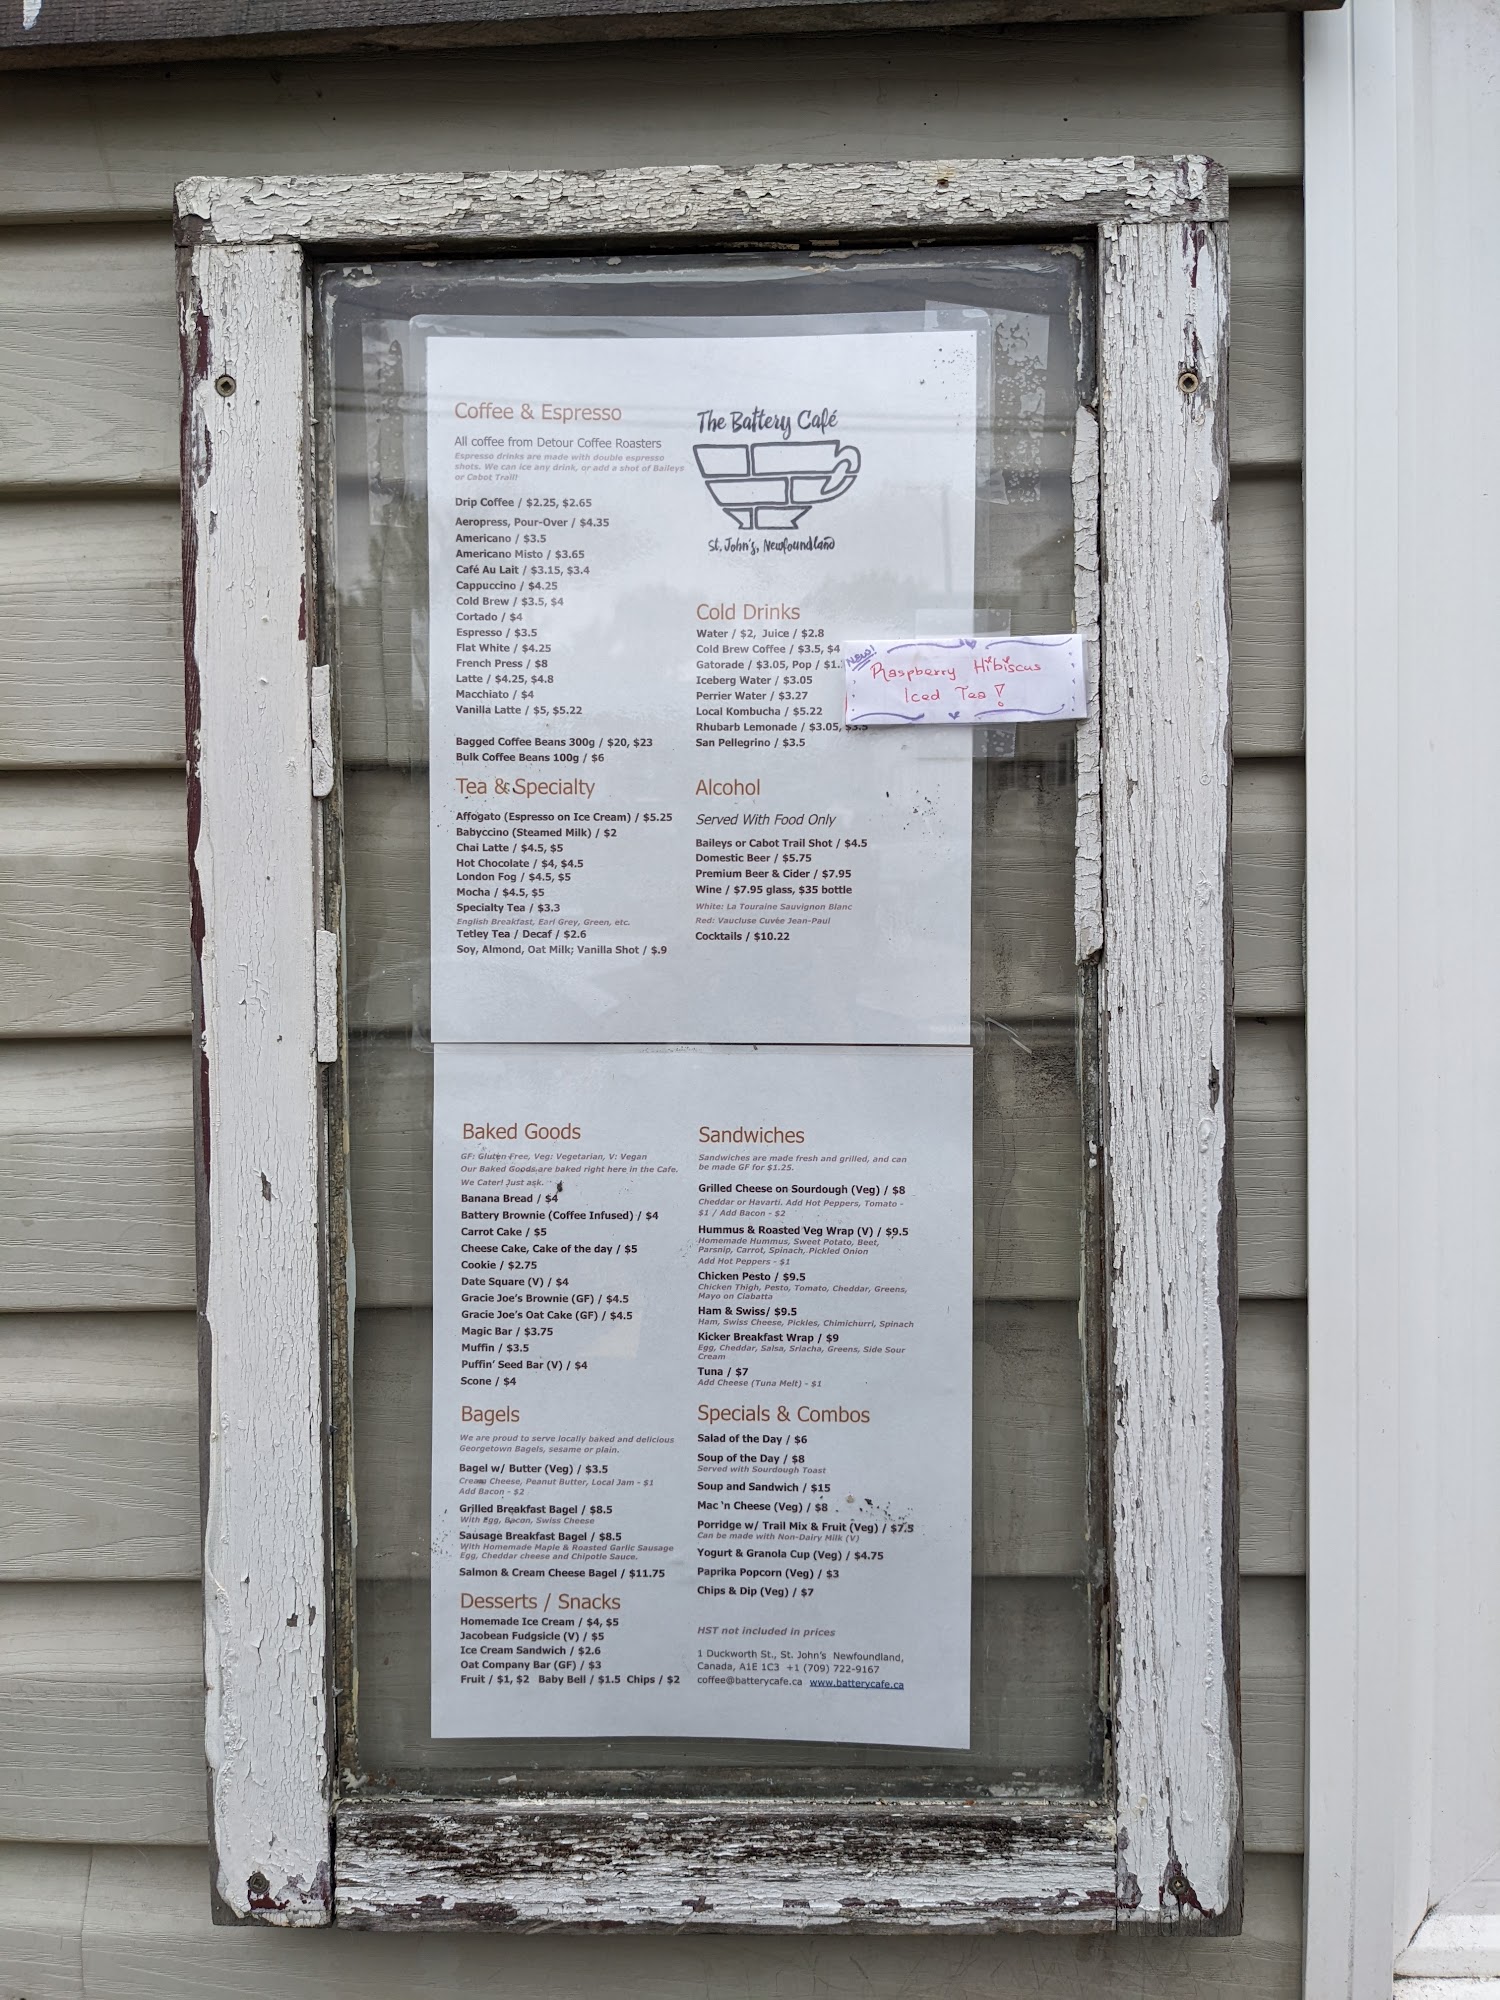 Coffee & Espresso
All coffee from Detour Coffee Roasters
Espresso drinks are made with double espresso
shots. We can ice any drink, or add a shot of Baileys
or Cabot Trail!
Drip Coffee / $2.25, $2.65
Aeropress, Pour-Over / $4.35
Americano / $3.5
Americano Misto / $3.65
Café Au Lait / $3.15, $3.4
Cappuccino / $4.25
Cold Brew / $3.5, $4
Cortado / $4
Espresso / $3.5
Flat White / $4.25
French Press / $8
Latte / $4.25, $4.8
Macchiato / $4
Vanilla Latte / $5, $5.22
Bagged Coffee Beans 300g / $20, $23
Bulk Coffee Beans 100g / $6
Tea & Specialty
Affogato (Espresso on Ice Cream) / $5.25
Babyccino (Steamed Milk) / $2
Chai Latte / $4.5, $5
Hot Chocolate / $4, $4.5
London Fog / $4.5, $5
Mocha / $4.5, $5
Specialty Tea / $3.3
English Breakfast, Earl Grey, Green, etc.
Tetley Tea / Decaf / $2.6
Soy, Almond, Oat Milk; Vanilla Shot / $.9
The Battery Café
St. John's, Newfoundland
Cold Drinks
Water / $2, Juice / $2.8
Cold Brew Coffee / $3.5, $4
Gatorade / $3.05, Pop / $1.
Iceberg Water / $3.05
Perrier Water / $3.27
Local Kombucha / $5.22
Rhubarb Lemonade / $3.05, $3.5
San Pellegrino / $3.5
NEW!
Raspberry Hibiscus
Iced Tea!
Alcohol
Served With Food Only
Baileys or Cabot Trail Shot / $4.5
Domestic Beer / $5.75
Premium Beer & Cider / $7.95
Wine / $7.95 glass, $35 bottle
White: La Touraine Sauvignon Blanc
Red: Vaucluse Cuvée Jean-Paul
Cocktails / $10.22
Baked Goods
GF: Gluten-Free, Veg: Vegetarian, V: Vegan
Our Baked Goods are baked right here in the Cafe.
We Cater! Just ask.
Banana Bread / $4
Battery Brownie (Coffee Infused) / $4
Carrot Cake / $5
Cheese Cake, Cake of the day / $5
Cookie / $2.75
Date Square (V) / $4
Gracie Joe's Brownie (GF) / $4.5
Gracie Joe's Oat Cake (GF) / $4.5
Magic Bar / $3.75
Muffin / $3.5
Puffin' Seed Bar (V) / $4
Scone / $4
Bagels
We are proud to serve locally baked and delicious
Georgetown Bagels, sesame or plain.
Bagel w/ Butter (Veg) / $3.5
Cream Cheese, Peanut Butter, Local Jam - $1
Add Bacon - $2
Grilled Breakfast Bagel / $8.5
With Egg, Bacon, Swiss Cheese
Sausage Breakfast Bagel / $8.5
With Homemade Maple & Roasted Garlic Sausage
Egg, Cheddar cheese and Chipotle Sauce.
Salmon & Cream Cheese Bagel / $11.75
Desserts / Snacks
Homemade Ice Cream / $4, $5
Jacobean Fudgsicle (V) / $5
Ice Cream Sandwich / $2.6
Oat Company Bar (GF) / $3
Fruit / $1, $2 Baby Bell / $1.5 Chips / $2
Sandwiches
Sandwiches are made fresh and grilled, and can
be made GF for $1.25.
Grilled Cheese on Sourdough (Veg) / $8
Cheddar or Havarti. Add Hot Peppers, Tomato -
$1 / Add Bacon - $2
Hummus & Roasted Veg Wrap (V) / $9.5
Homemade Hummus, Sweet Potato, Beet,
Parsnip, Carrot, Spinach, Pickled Onion
Add Hot Peppers - $1
Chicken Pesto / $9.5
Chicken Thigh, Pesto, Tomato, Cheddar, Greens,
Mayo on Ciabatta
Ham & Swiss/ $9.5
Ham, Swiss Cheese, Pickles, Chimichurri, Spinach
Kicker Breakfast Wrap / $9
Egg, Cheddar, Salsa, Sriacha, Greens, Side Sour
Cream
Tuna / $7
Add Cheese (Tuna Melt) - $1
Specials & Combos
Salad of the Day / $6
Soup of the Day / $8
Served with Sourdough Toast
Soup and Sandwich / $15
Mac 'n Cheese (Veg) / $8
Porridge w/ Trail Mix & Fruit (Veg) / $7.5
Can be made with Non-Dairy Milk (V)
Yogurt & Granola Cup (Veg) / $4.75
Paprika Popcorn (Veg) / $3
Chips & Dip (Veg) / $7
HST not included in prices
1 Duckworth St., St. John's Newfoundland,
Canada, A1E 1C3 +1 (709) 722-9167
coffee@batterycafe.ca www.batterycafe.ca